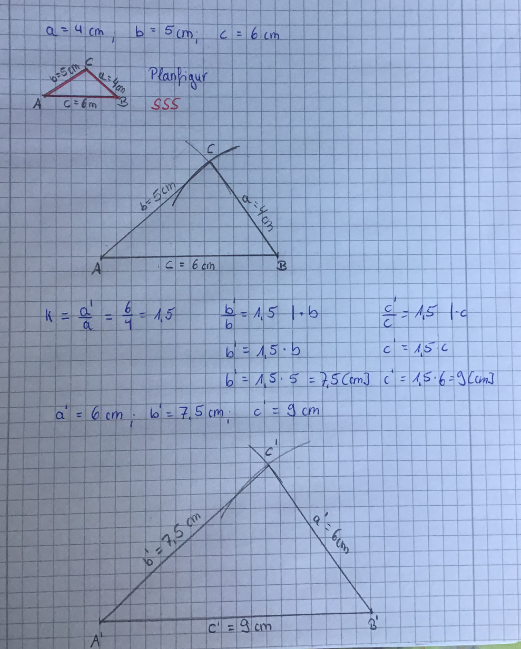 a = 4 cm, b = 5 cm; c = 6 cm
C
b=5cm a=4cm
Planfigur
A c = 6m B
SSS
C
b=5cm a=4cm
A c = 6 cm B
K = a'/a = 6/4 = 1,5 b'/b = 1,5 | · b c'/c = 1,5 | · c
b' = 1,5 · b c' = 1,5 · c
b' = 1,5 · 5 = 7,5 [cm] c' = 1,5 · 6 = 9 [cm]
a' = 6 cm; b' = 7,5 cm; c' = 9 cm
C'
b' = 7,5 cm a' = 6cm
A' c' = 9 cm B'